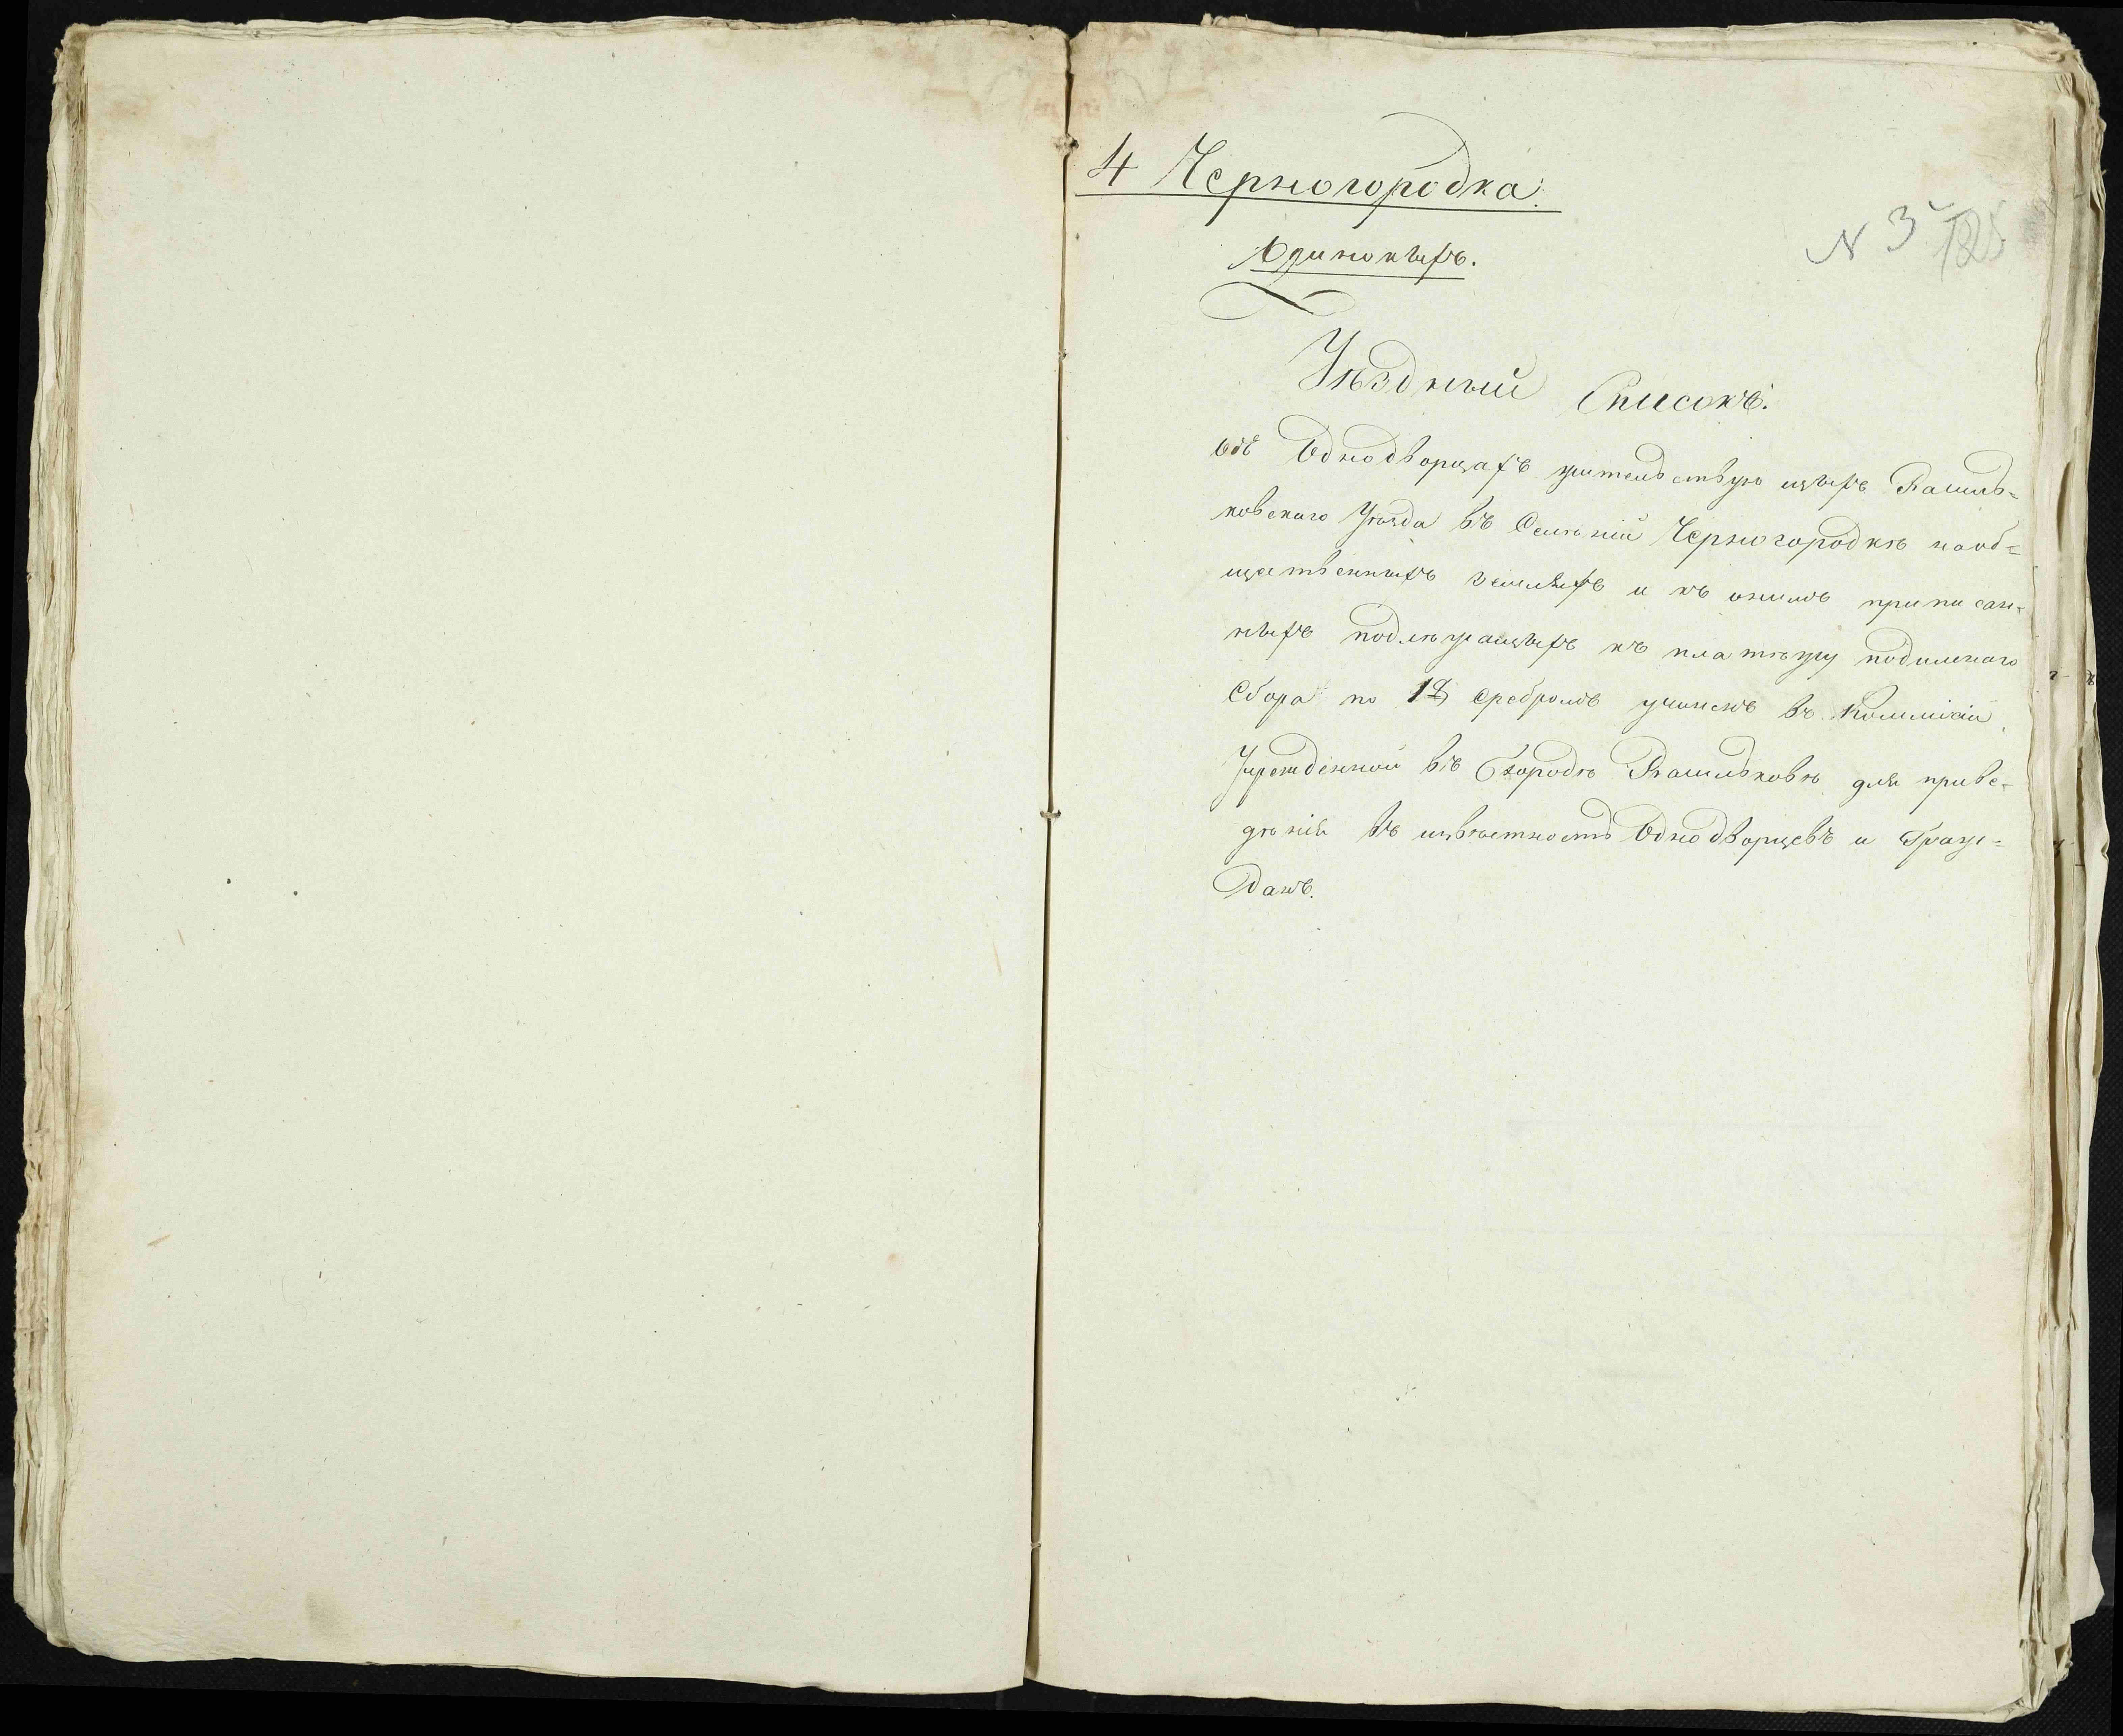 4 Черногородка.
Одинокихъ.
N 3
Уѣздный Списокъ.
Объ Однодворцахъ жительствующихъ Василь
ковскаго Уѣзда въ Селеніи Черногородкѣ на об=
щественныхъ земляхъ и къ онымъ приписан=
ныхъ подлежащихъ къ платежу подымнаго
Сбора по сребромъ учиненъ въ Коммисіи,
Учрежденной въ Городѣ Васильковѣ для приве=
денія въ извѣстность Однодворцевъ и Граж=
данъ.